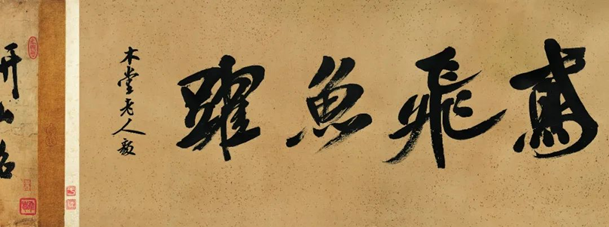 鳶飛魚躍
木堂老人毅